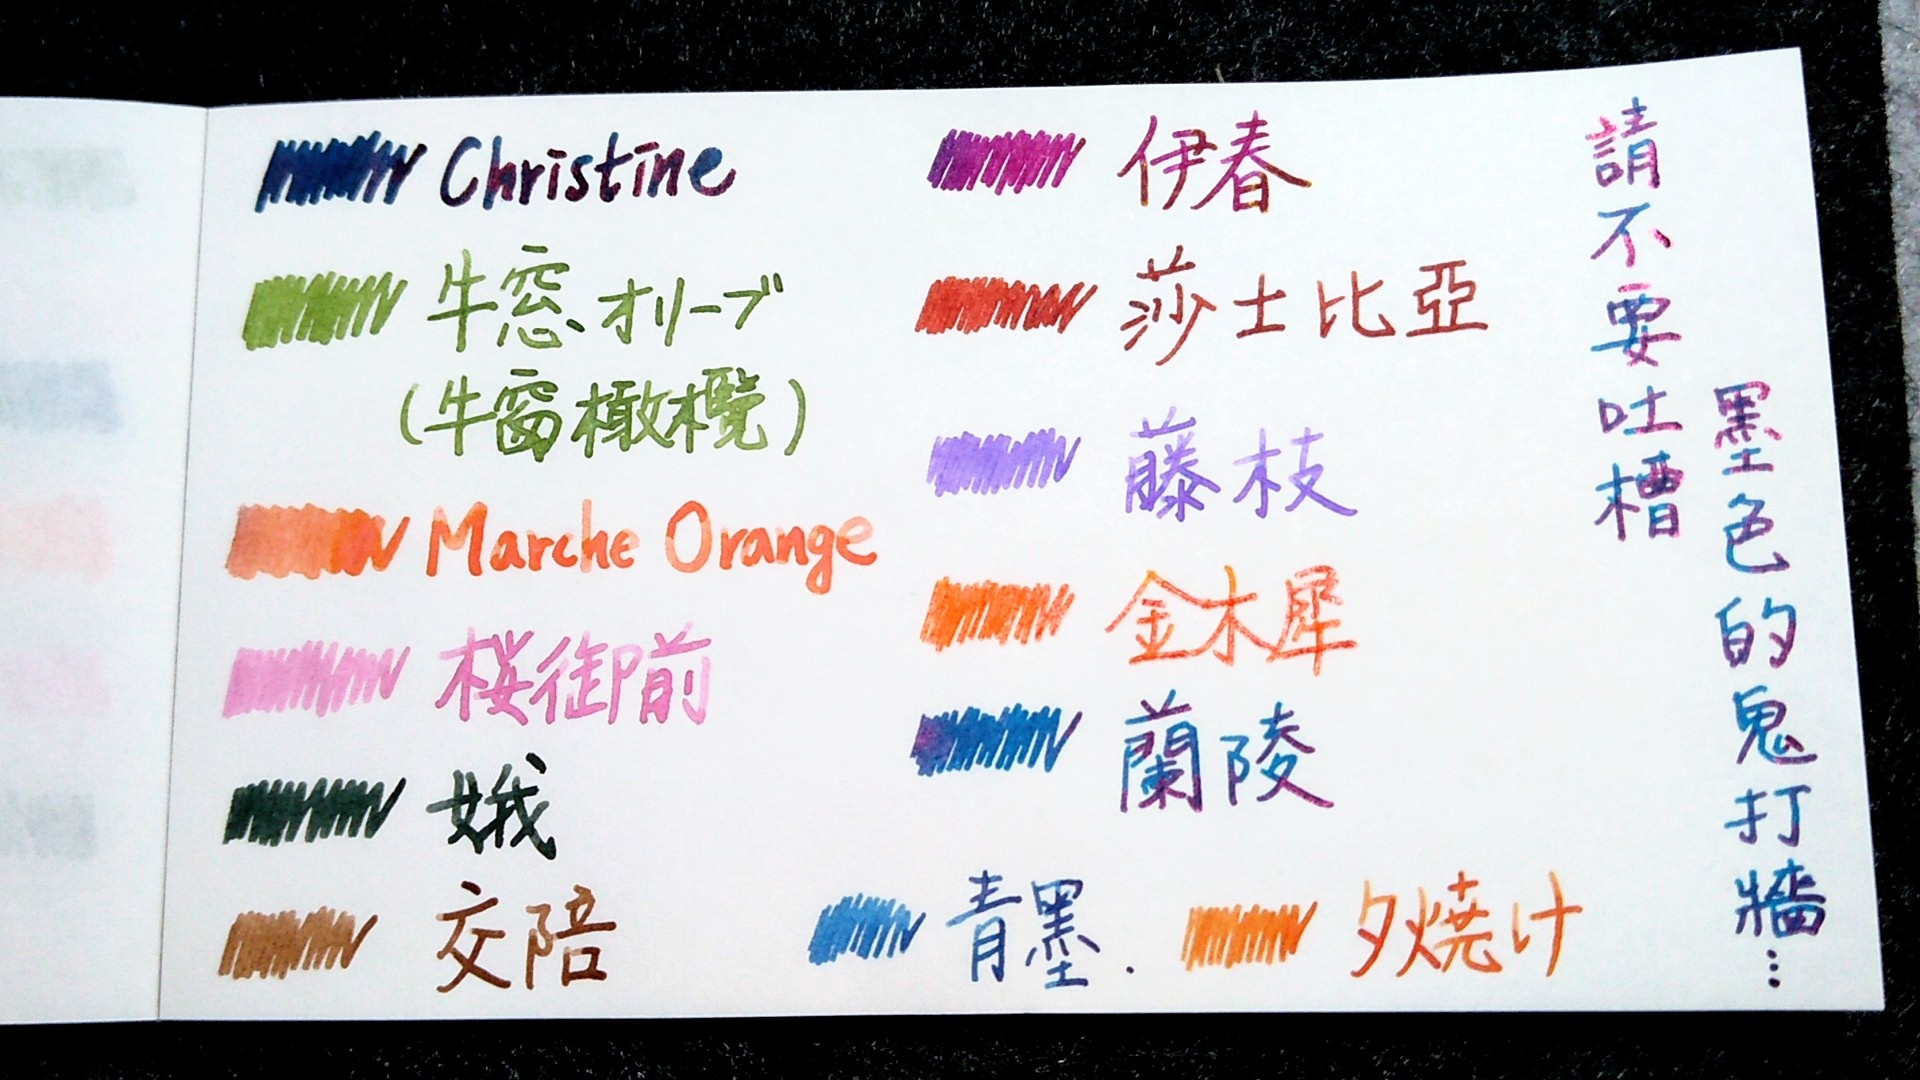 Christine
牛窓オリーブ
(牛窗橄欖)
Marche Orange
桜御前
娥
交陪
伊春
莎士比亞
藤枝
金木犀
蘭陵
青墨.
夕焼け
請不要吐槽
墨色的鬼打牆…